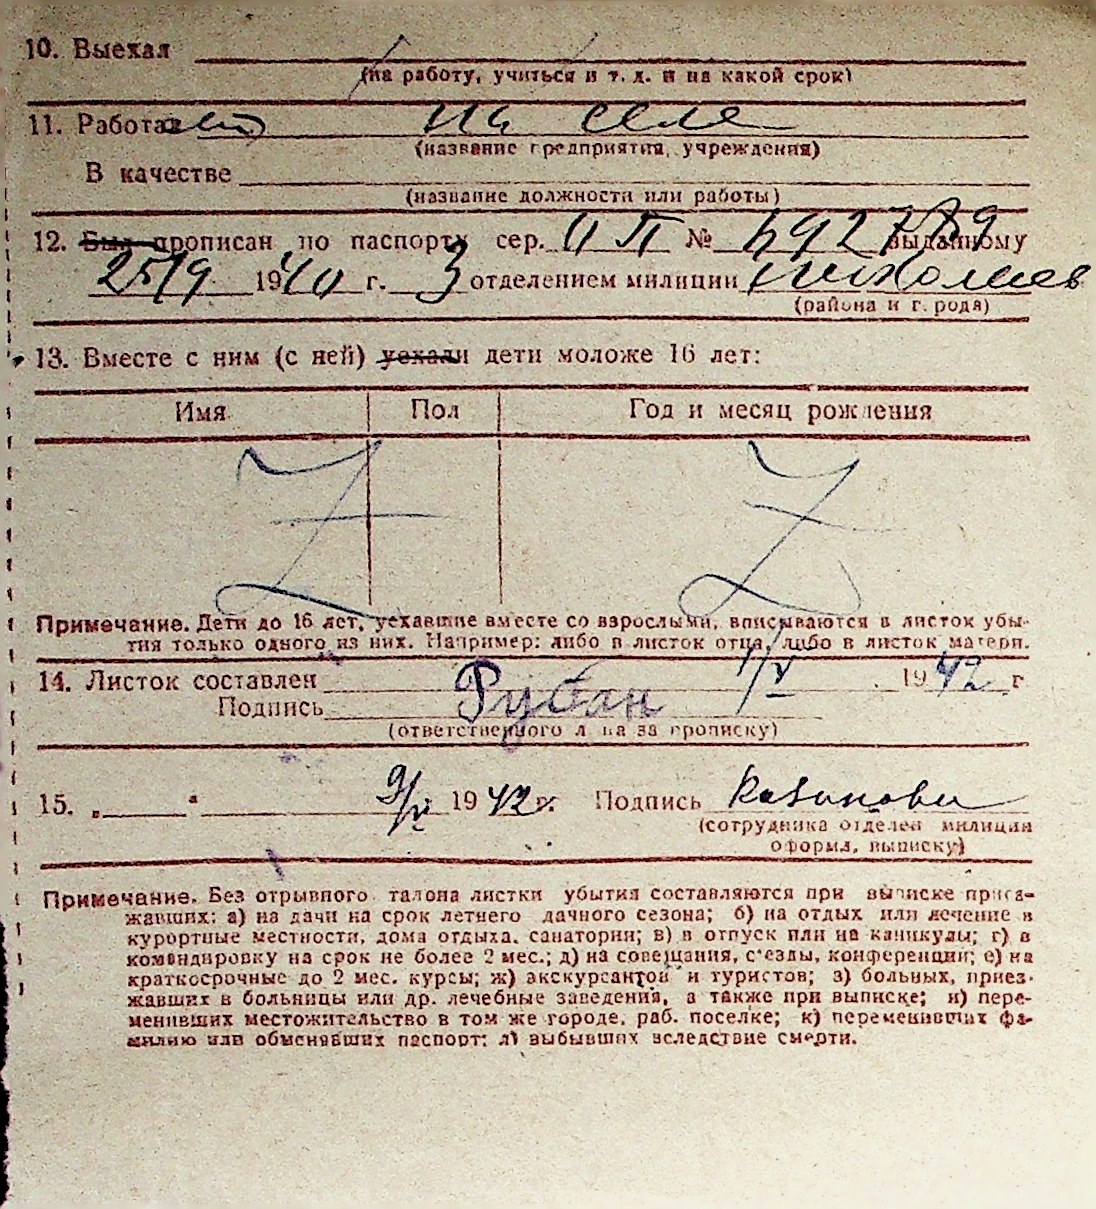 10. Выехал
(на работу, учиться и т. д. и на какой срок)
11. Работает на селе
(название предприятия, учреждения)
В качестве
(название должности или работы)
12. Был прописан по паспорту сер. II П № 692789 выданному
25/9 1940 г. 3 отделением милиции Николаев
(района и города)
13. Вместе с ним (с ней) уехали дети моложе 16 лет:
Имя Пол Год и месяц рождения
Z Z
Примечание. Дети до 16 лет, уехавшие вместе со взрослыми, вписываются в листок убы-
тия только одного из них. Например: либо в листок отца, либо в листок матери.
14. Листок составлен 1/V 1942 г
Подпись Рубан
(ответственного лица за прописку)
15. „ “ 9/V 1942 г. Подпись
(сотрудника отделен милиции
оформл, выписку)
Примечание. Без отрывного талона листки убытия составляются при выписке приез-
жавших: а) на дачи на срок летнего дачного сезона; б) на отдых или лечение в
курортные местности, дома отдыха, санатории; в) в отпуск или на каникулы; г) в
командировку на срок не более 2 мес.; д) на совещания, съезды, конференции; е) на
краткосрочные до 2 мес. курсы; ж) экскурсантов и туристов; з) больных, приез-
жавших в больницы или др. лечебные заведения, а также при выписке; и) пере-
менивших местожительство в том же городе, раб. поселке; к) переменивших фа-
милию или обменявших паспорт; л) выбывших вследствие смерти.